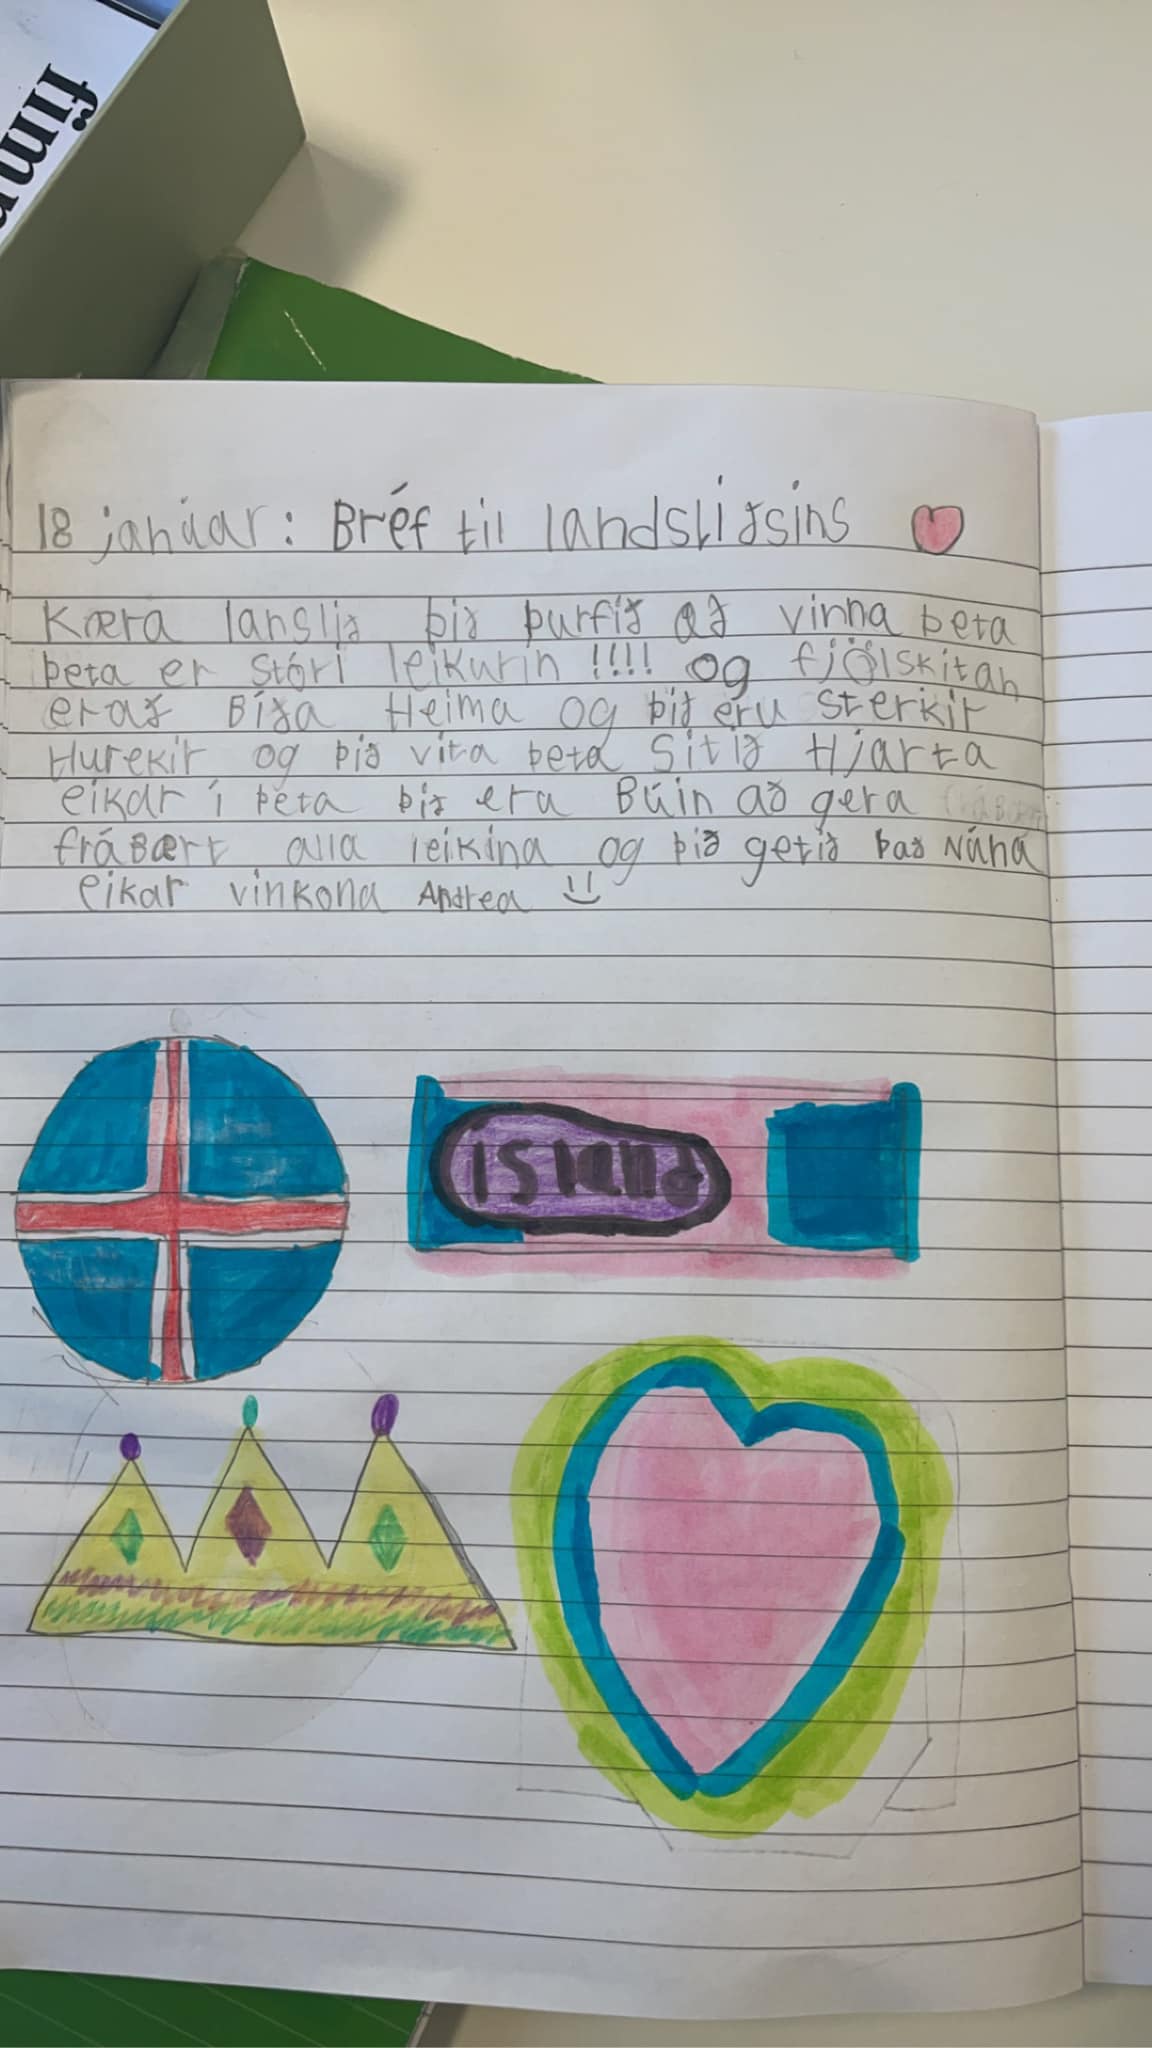 fimm
18 janúar: Bréf til landsliðsins
Kæra lanslið þið þurfið að vinna þeta
þeta er stóri leikurin !!!! og fjölskitan
erað Bíða Heima og þið eru sterkir
Hurekir og þið vita þeta sitið Hjarta
eikar í þeta þið era Búin að gera frábært
fráBært alla leikina og þið getið það Núna
eikar vinkona Andrea
island